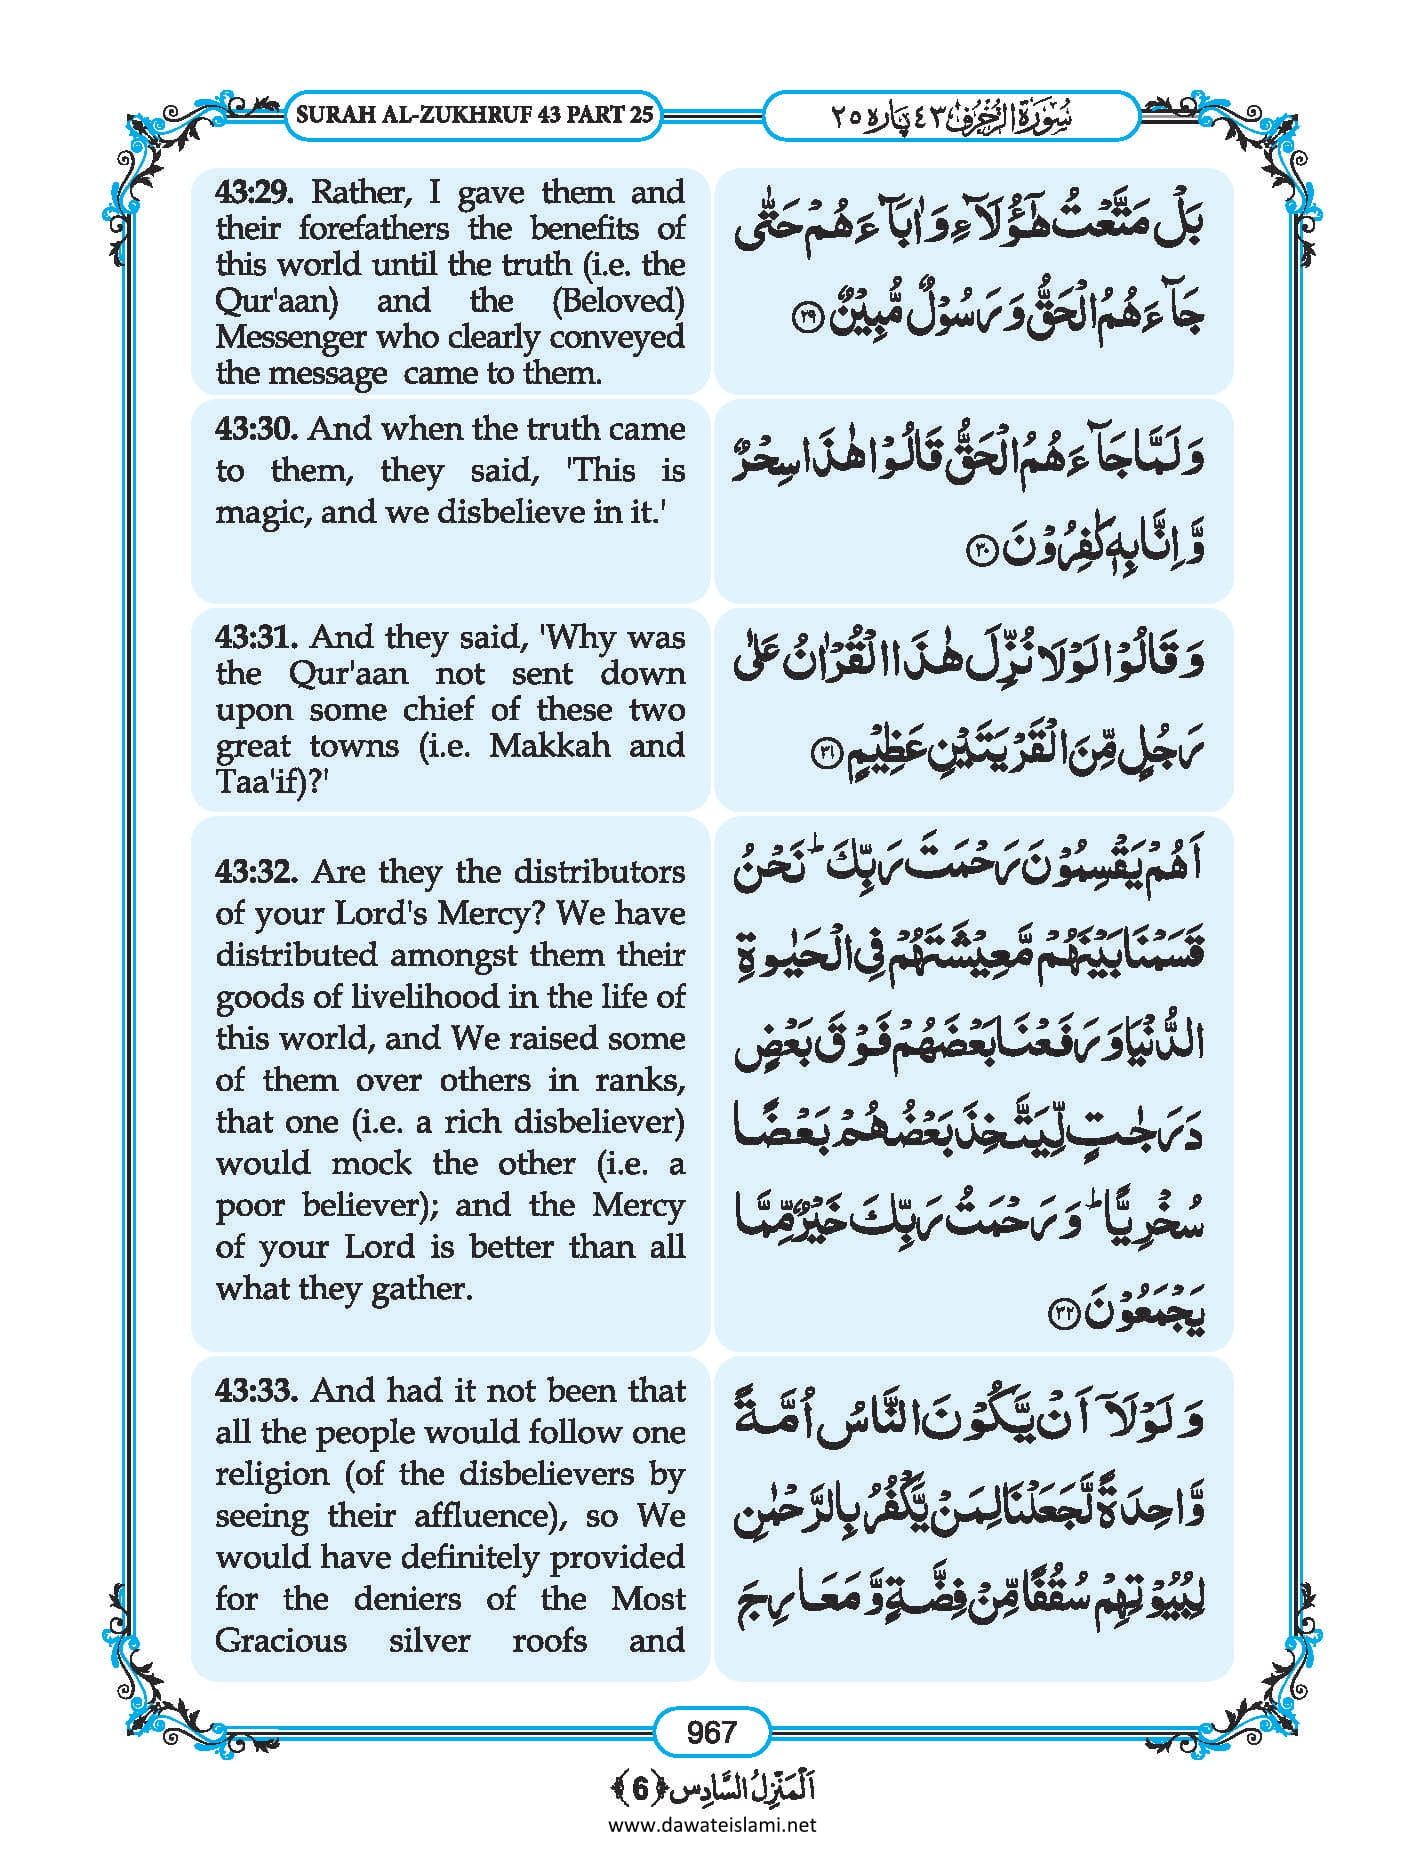 SURAH AL-ZUKHRUF 43 PART 25
سُوْرَةُ الزُّخْرُفِ ٤٣ پارہ ٢٥
43:29. Rather, I gave them and
their forefathers the benefits of
this world until the truth (i.e. the
Qur'aan) and the (Beloved)
Messenger who clearly conveyed
the message came to them.
بَلْ مَتَّعْتُ هٰۤؤُلَآءِ وَ اٰبَآءَهُمْ حَتّٰى
جَآءَهُمُ الْحَقُّ وَ رَسُوْلٌ مُّبِيْنٌ ﴿٢٩﴾
43:30. And when the truth came
to them, they said, 'This is
magic, and we disbelieve in it.'
وَ لَمَّا جَآءَهُمُ الْحَقُّ قَالُوْا هٰذَا سِحْرٌ
وَّ اِنَّا بِهٖ كٰفِرُوْنَ ﴿٣٠﴾
43:31. And they said, 'Why was
the Qur'aan not sent down
upon some chief of these two
great towns (i.e. Makkah and
Taa'if)?'
وَ قَالُوْا لَوْلَا نُزِّلَ هٰذَا الْقُرْاٰنُ عَلٰى
رَجُلٍ مِّنَ الْقَرْيَتَيْنِ عَظِيْمٍ ﴿٣١﴾
43:32. Are they the distributors
of your Lord's Mercy? We have
distributed amongst them their
goods of livelihood in the life of
this world, and We raised some
of them over others in ranks,
that one (i.e. a rich disbeliever)
would mock the other (i.e. a
poor believer); and the Mercy
of your Lord is better than all
what they gather.
اَهُمْ يَقْسِمُوْنَ رَحْمَتَ رَبِّكَ ؕ نَحْنُ
قَسَمْنَا بَيْنَهُمْ مَّعِيْشَتَهُمْ فِي الْحَيٰوةِ
الدُّنْيَا وَ رَفَعْنَا بَعْضَهُمْ فَوْقَ بَعْضٍ
دَرَجٰتٍ لِّيَتَّخِذَ بَعْضُهُمْ بَعْضًا
سُخْرِيًّا ؕ وَ رَحْمَتُ رَبِّكَ خَيْرٌ مِّمَّا
يَجْمَعُوْنَ ﴿٣٢﴾
43:33. And had it not been that
all the people would follow one
religion (of the disbelievers by
seeing their affluence), so We
would have definitely provided
for the deniers of the Most
Gracious silver roofs and
وَ لَوْلَاۤ اَنْ يَّكُوْنَ النَّاسُ اُمَّةً
وَّاحِدَةً لَّجَعَلْنَا لِمَنْ يَّكْفُرُ بِالرَّحْمٰنِ
لِبُيُوْتِهِمْ سُقُفًا مِّنْ فِضَّةٍ وَّ مَعَارِجَ
967
اَلْمَنْزِلُ السَّادِس ﴿6﴾
www.dawateislami.net